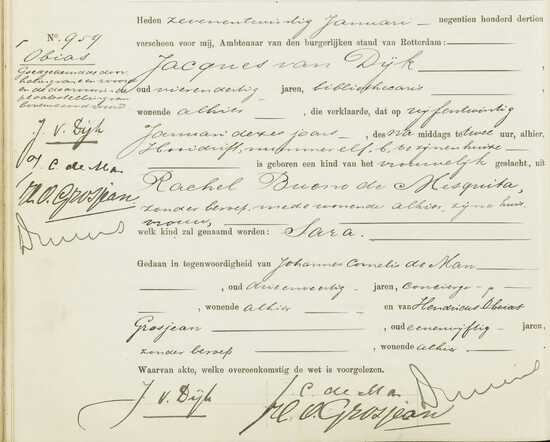 Heden zevenentwintig Januari negentien honderd dertien
verscheen voor mij, Ambtenaar van den burgerlijken stand van Rotterdam:
Jacques van Dijk
oud vierendertig jaren, bibliothecaris
wonende alhier, die verklaarde, dat op vijfentwintig
Januari dezes jaars, des na middags te twee uur, alhier,
nummer elf, b, te zijnen huize
is geboren een kind van het vrouwelijk geslacht, uit
Rachel Bueno de Mesquita,
zonder beroep, mede wonende alhier, zijne huis
vrouw,
welk kind zal genaamd worden: Sara.
Gedaan in tegenwoordigheid van Johannes Cornelis de Man
oud drieenveertig jaren, concierge
, wonende alhier en van Hendricus
Grosjean, oud eenenvijftig jaren,
zonder beroep, wonende alhier
Waarvan akte, welke overeenkomstig de wet is voorgelezen.
J. v. Dijk C. de Man
H. O. Grosjean
No. 959
Obias
Goedgekeurd de door
haling van een woord
en de daarvoor in de
plaatsstelling van
bovenstaand woord
J. v. Dijk
C. de Man
H. O. Grosjean